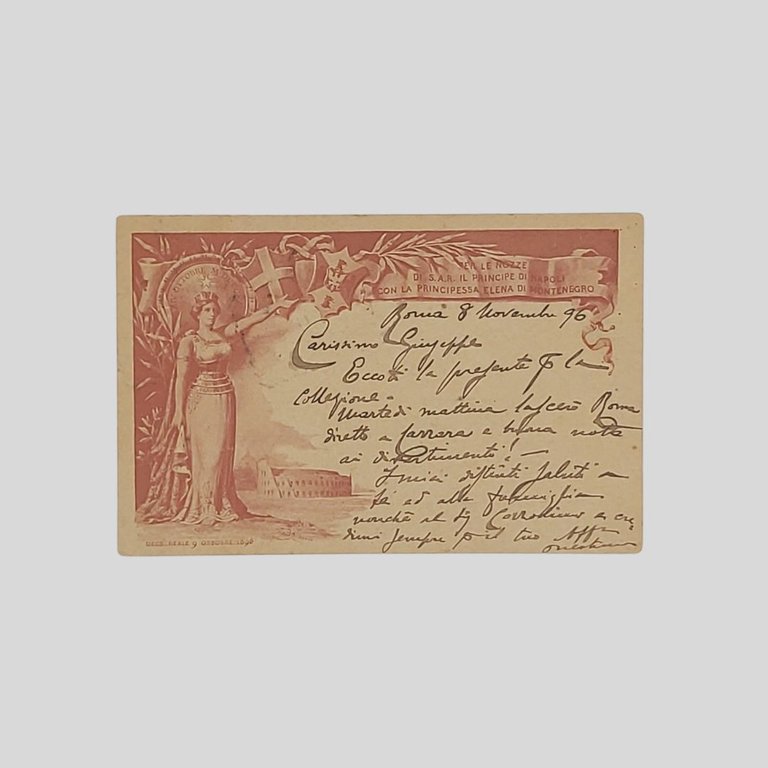 PER LE NOZZE
DI S.A.R. IL PRINCIPE DI NAPOLI
CON LA PRINCIPESSA ELENA DI MONTENEGRO
OTTOBRE
Roma 8 Novembre 96
Carissimo Giuseppe
Eccoti la presente p la
Collezione -
Martedì mattina lascerò Roma
diretto a Carrara e buona notte
ai divertimenti! -
I miei distinti saluti a
te ed alla famiglia
nonchè al Sig. e cre
dimi sempre p il tuo Aff
DECR. REALE 9 OTTOBRE 1896